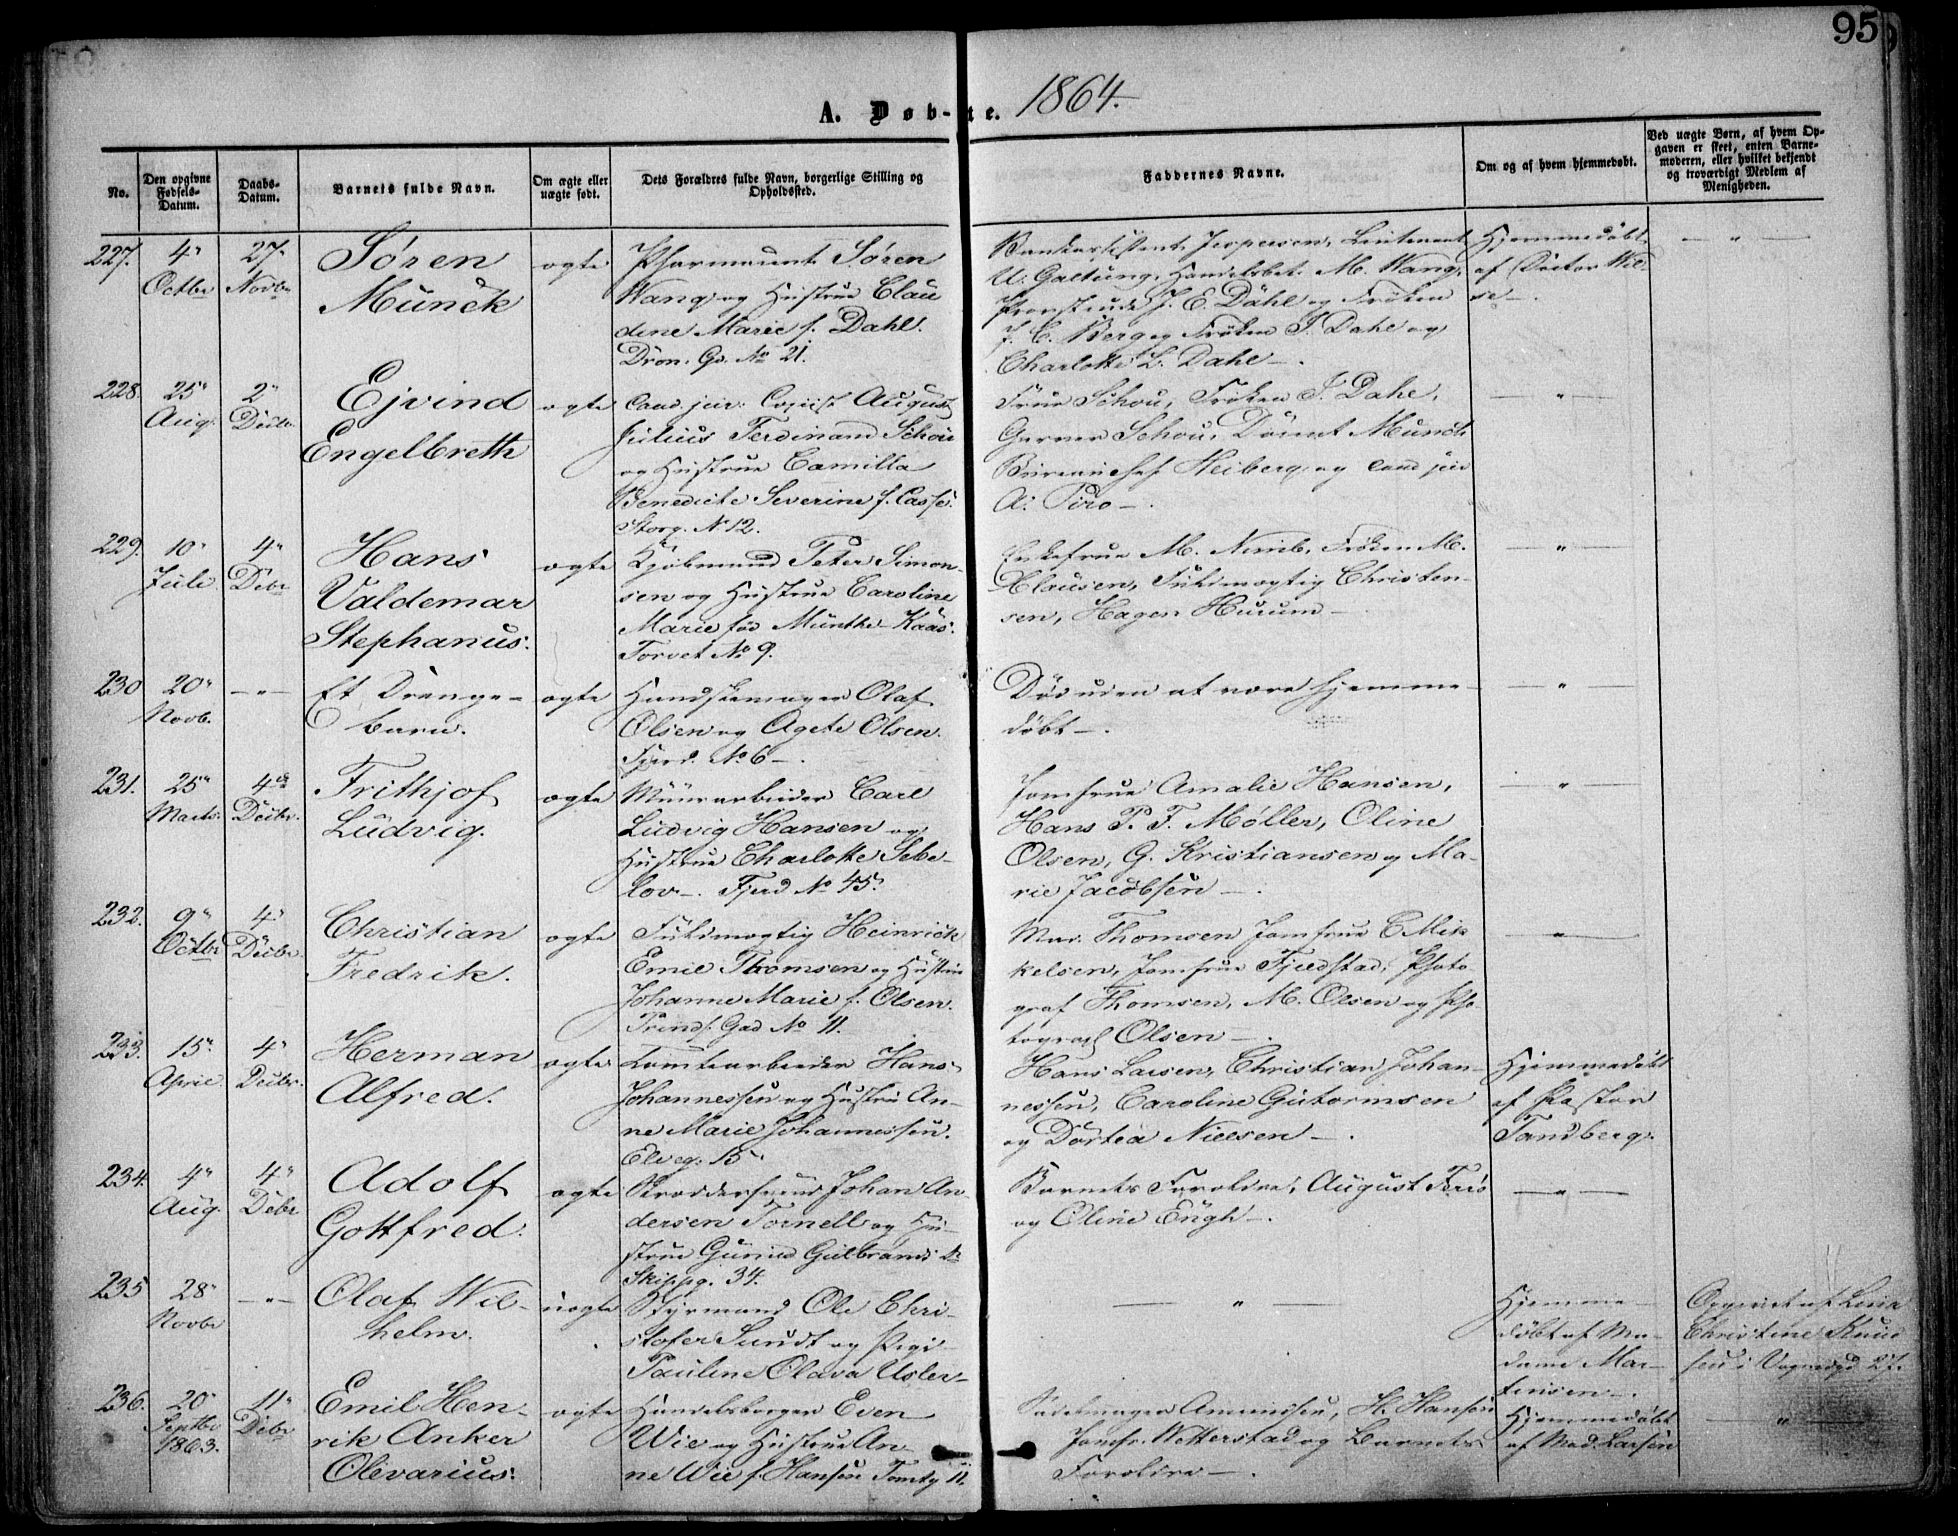 95
A. Døbte. 1864.
No.
Den opgivne Fødsels-Datum.
Daabs-Datum.
Barnets fulde Navn.
Om ægte eller uægte født.
Dets Forældres fulde Navn, borgerlige Stilling og Opholdssted.
Faddernes Navne.
Om og af hvem hjemmedøbt.
Ved uægte Børn, af hvem Opgaven er skeet, enten Barnemoderen, eller hvilket bekjendt og troværdigt Medlem af Menigheden.
227. 4" Octbr 27" Novbr
Søren
Munck
ægte
Pharmaceut Søren
Wang og Hustrue Clau
dine Marie f. Dahl.
Dron. Gd. No 21.
Bankassistent Jespersen, Lieutenant
U. Galtung, Handelsbet. M. Wang,
Provstinde J. E. Dahl og Frøken
J. C. Berg og Frøken J. Dahl og
Charlotte L. Dahl —.
Hjemmedøbt
af Doctor Wil-
se —.
— " —
228. 25" Aug. 2" Decbr.
Ejvind
Engelbreth
ægte
Cand. jur. Copist August
Julius Ferdinand Schou
og Hustrue Camilla
Benedicte Severine f. Casse.
Storg. No 12.
Frue Schou, Frøken J. Dahl,
Garver Schou, Döent Munch
Bureauchef Heiberg, og cand jur
A. Piro —.
— " —
229. 10" Juli 4" Debr
Hans
Valdemar
Stephanus.
ægte
Kjøbmand Peter Simon-
sen og Hustrue Caroline
Marie fød Münthe Kaas.
Torvet No 9.
Enkefrue M. Nimb, Frøken M.
Clausen, Fuldmægtig Christen-
sen, Hagen Hurum —
— " —
230 20" Novb. — " —
Et Drenge-
barn.
ægte
Handskemager Olaf
Olsen og Agete Olsen.
Fjerd. No 6 —.
Død uden at være hjemme-
døbt —.
— " —
231. 25" Marts. 4de Decbr.
Frithjof
Ludvig.
ægte
Muurarbeider Carl
Ludvig Hansen og
Hustrue Charlotte Sebe-
lov —. Fjerd No 45.
Jomfrue Amalie Hansen,
Hans P. F. Møller, Oline
Olsen, G. Kristiansen og Ma-
rie Jacobsen —.
— " —
232. 9" Octbr 4" Decbr.
Christian
Fredrik.
ægte
Fuldmægtig Heinrick
Emil Thomsen og Hustrue
Johanne Marie f. Olsen.
Prinds. Gad No 11.
Mad. Thomsen Jomfrue C Mik
kelsen, Jomfrue Fjeldstad, Photo-
graf Thomsen, M. Olsen og Pho-
tograf Olsen —.
— " —
233. 15" April 4" Decbr.
Herman
Alfred.
ægte
Tomtearbeider Hans
Johannessen og Hustru An-
ne Marie Johannessen.
Elveg. 15.
Hans Larsen, Christian Johan-
nessen, Caroline Gutormsen
og Dortea Nielsen —.
Hjemmedøbt
af Pastor
Tandberg.
234. 4" Aug. 4" Debr
Adolf
Gottfred.
ægte
Skræddersvend Johan An-
dersen Tornell og Hu-
strue Gunild Gulbrandsdr
Skippg. 34.
Barnets Forældre, August Feriö
og Oline Engh —.
— " —
235 28" Novbr — " —
Olaf Wil-
helm.
uægte
Styrmand Ole Chri-
stofer Sundt og Pige
Pauline Olava Usler —
— " —
Hjemme-
døbt af Ma-
dame Mar-
tinsen —.
Opgivet af Lina
Christine Knud
sen i Vognmdgd. 27.
236. 20" Septbr 1863. 11" Debr
Emil Hen-
rik Anker
Olevarius.
ægte
Handelsborger Even
Wie og Hustrue An-
ne Wie f. Hansen Tomtg 11.
Sadelmager Amundsen, H. Hansen
Jomfr. Wetterstad og Barnets
Forældre —.
Hjemmedøbt
af Mad. Larsen
— " —